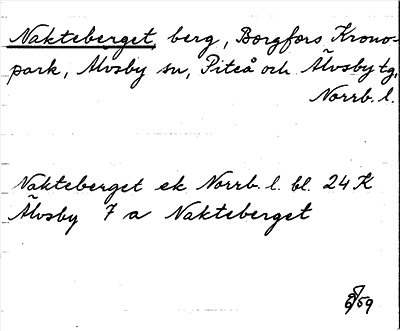 Nakteberget, berg, Borgfors Krono-
park, Älvsby sn, Piteå och Älvsby tg,
Norrb. l.
Nakteberget ek Norrb. l. bl. 24 K
Älvsby 7 a Nakteberget